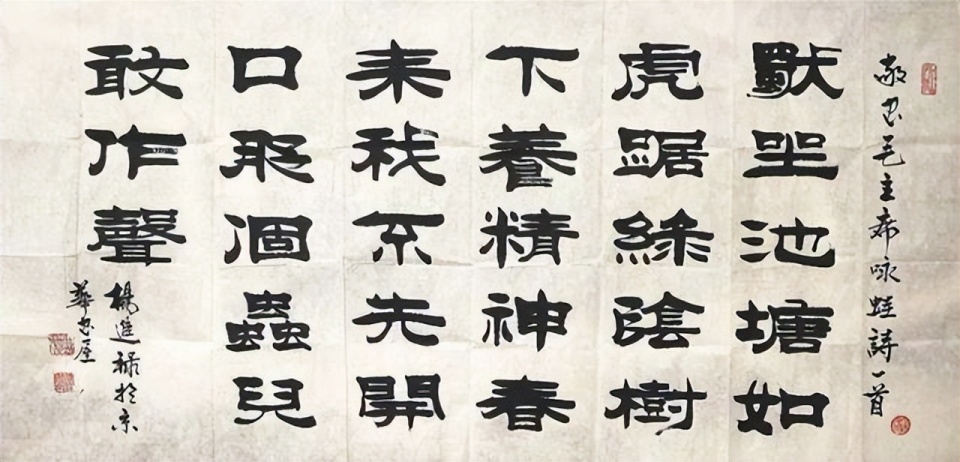 敬書毛主席咏蛙詩一首
獨坐池塘如
虎踞綠陰樹
下養精神春
来我不先開
口那個蟲兒
敢作聲
楊進禄於京
書屋